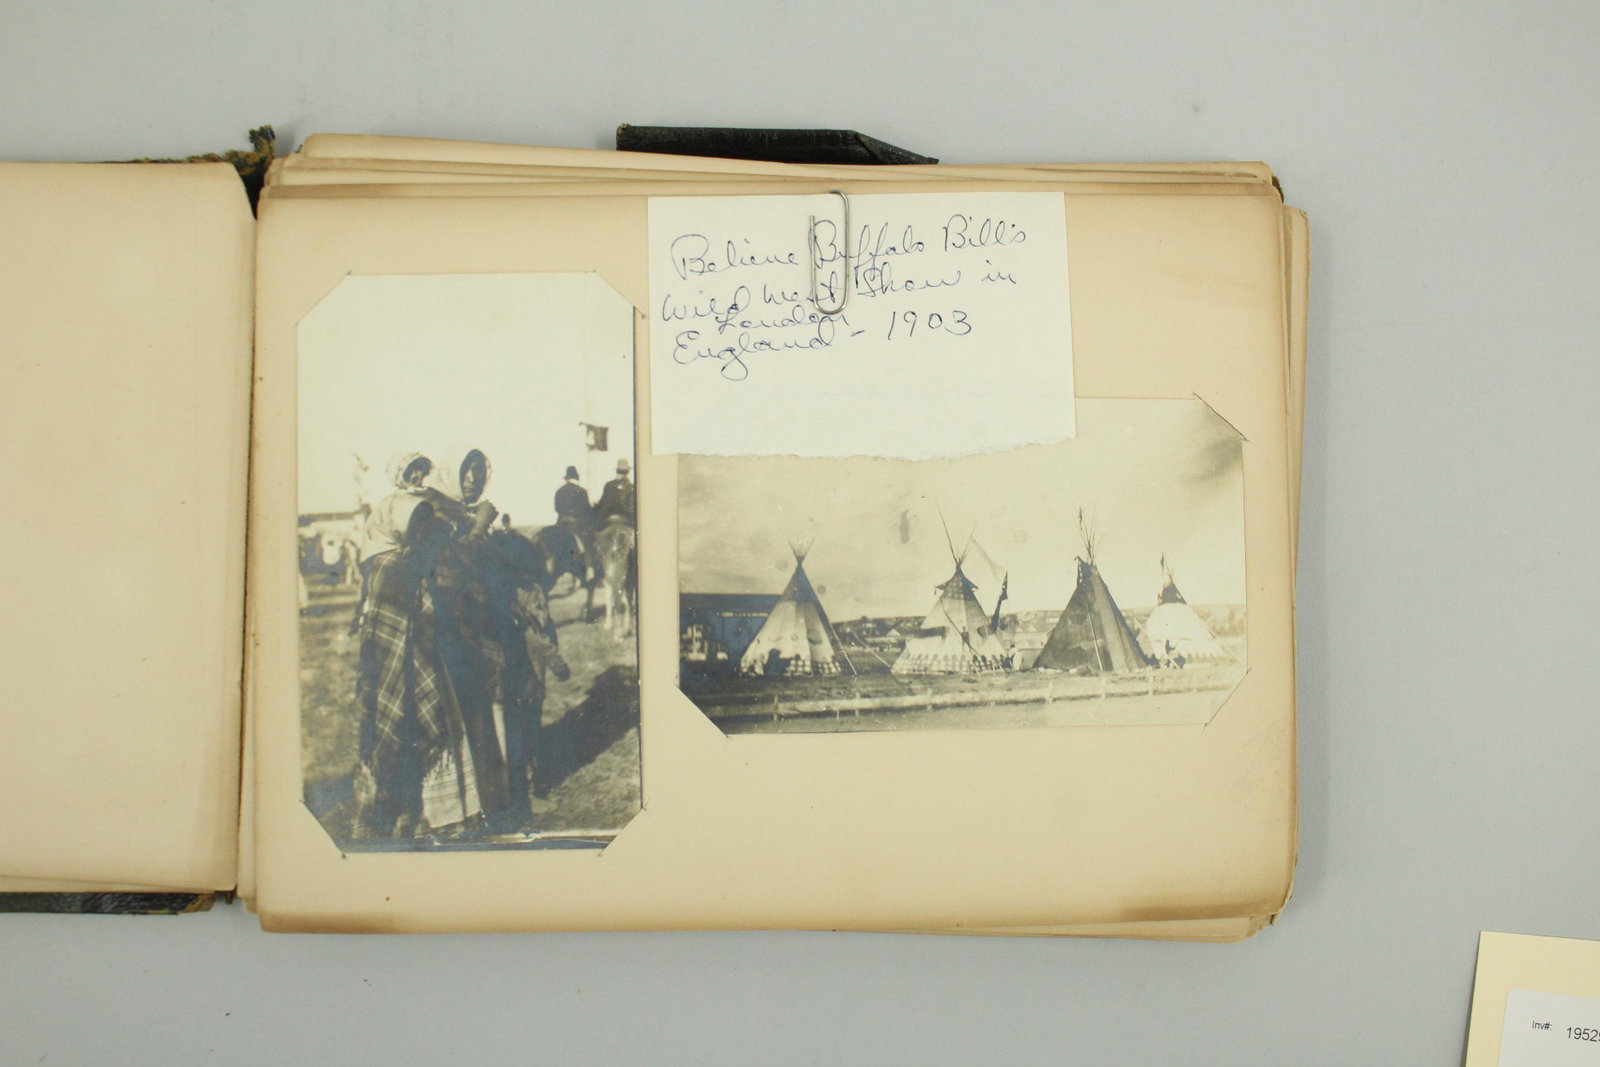 Believe Buffalo Bill's
Wild West Show in
London
England - 1903
Inv#: 19529